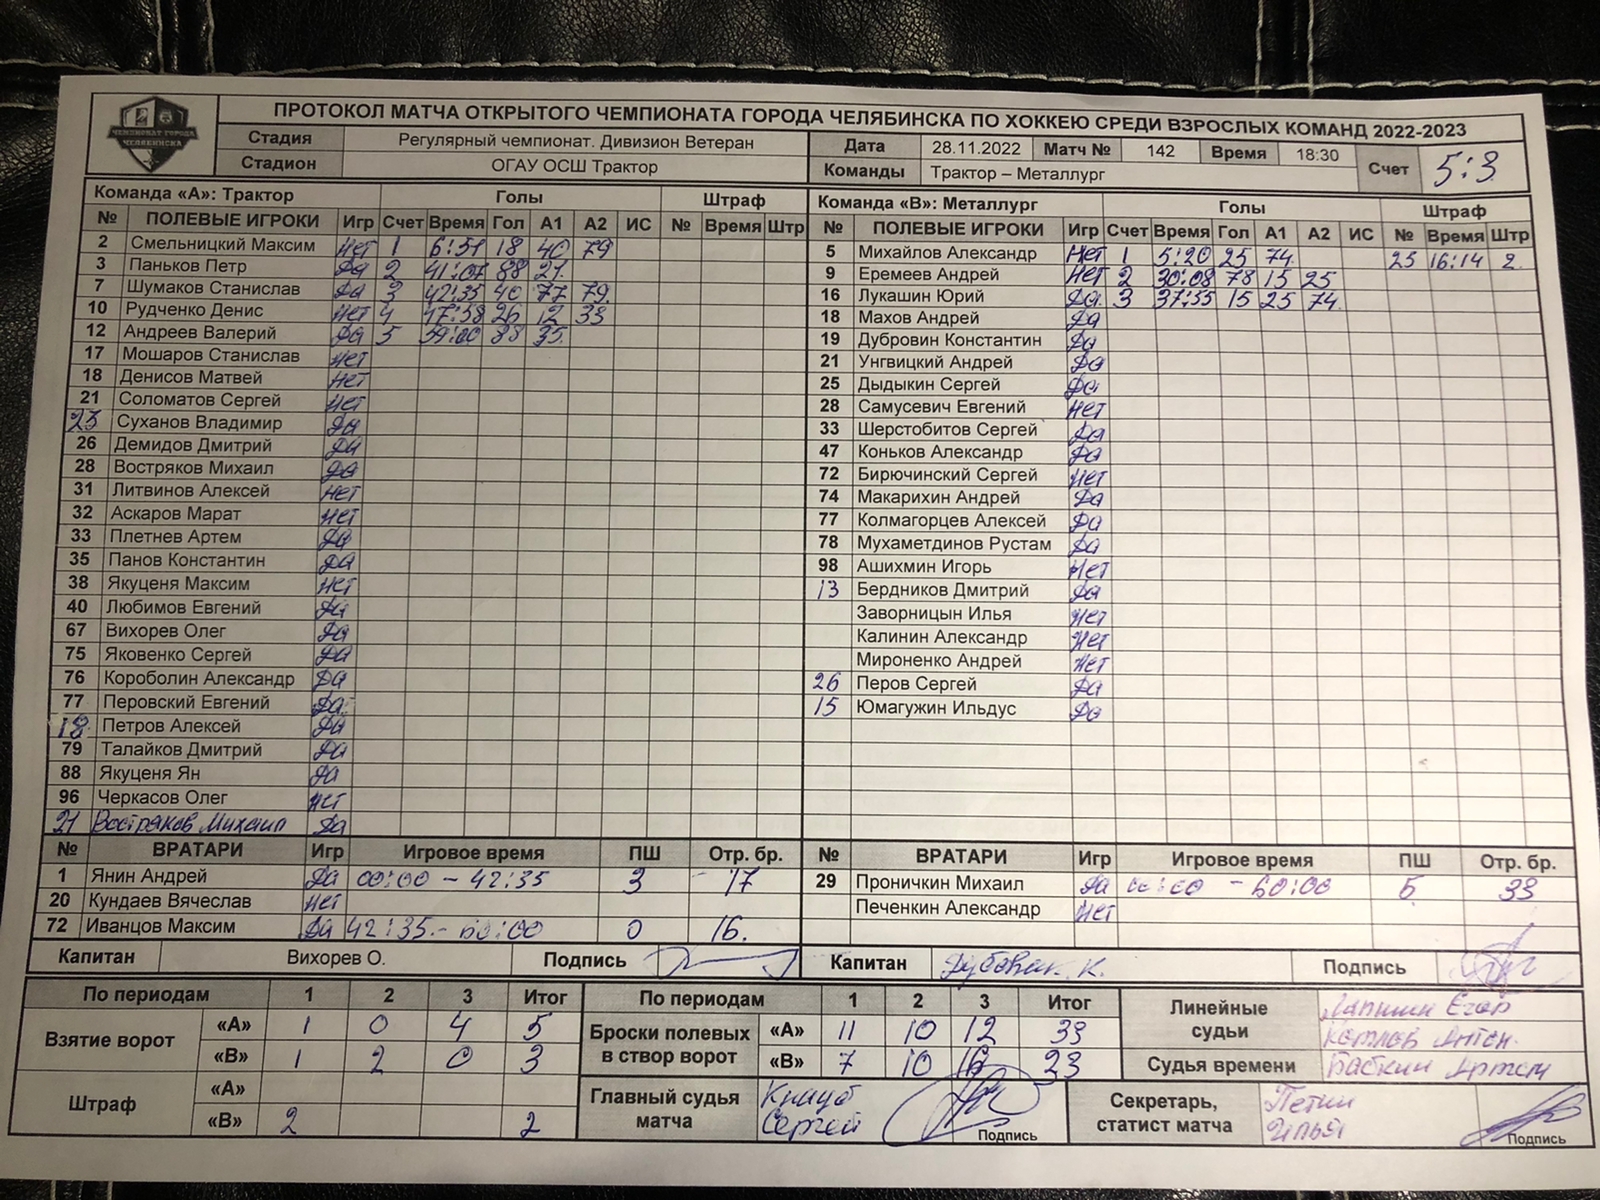 ЧЕМПИОНАТ ГОРОДА
ЧЕЛЯБИНСКА
ПРОТОКОЛ МАТЧА ОТКРЫТОГО ЧЕМПИОНАТА ГОРОДА ЧЕЛЯБИНСКА ПО ХОККЕЮ СРЕДИ ВЗРОСЛЫХ КОМАНД 2022-2023
Стадия Регулярный чемпионат. Дивизион Ветеран Дата 28.11.2022 Матч № 142 Время 18:30 Счет 5:3
Стадион ОГАУ ОСШ Трактор Команды Трактор – Металлург
Команда «А»: Трактор Голы Штраф
№ ПОЛЕВЫЕ ИГРОКИ Игр Счет Время Гол А1 А2 ИС № Время Штр
2 Смельницкий Максим Нет 1 6:51 18 40 79
3 Паньков Петр Да 2 41:07 88 21
7 Шумаков Станислав Да 3 42:35 40 77 79
10 Рудченко Денис Нет 4 47:58 26 12 33
12 Андреев Валерий Да 5 59:00 88 35
17 Мошаров Станислав Нет
18 Денисов Матвей Нет
21 Соломатов Сергей Нет
23 Суханов Владимир Да
26 Демидов Дмитрий Да
28 Востряков Михаил Да
31 Литвинов Алексей Нет
32 Аскаров Марат Нет
33 Плетнев Артем Да
35 Панов Константин Да
38 Якуценя Максим Нет
40 Любимов Евгений Да
67 Вихорев Олег Да
75 Яковенко Сергей Да
76 Короболин Александр Да
77 Перовский Евгений Да
18 Петров Алексей Да
79 Талайков Дмитрий Да
88 Якуценя Ян Да
96 Черкасов Олег Нет
21 Востряков Михаил Да
№ ВРАТАРИ Игр Игровое время ПШ Отр. бр.
1 Янин Андрей Да 00:00 - 42:35 3 17
20 Кундаев Вячеслав Нет
72 Иванцов Максим Да 42:35 - 60:00 0 16.
Капитан Вихорев О. Подпись
Команда «В»: Металлург Голы Штраф
№ ПОЛЕВЫЕ ИГРОКИ Игр Счет Время Гол А1 А2 ИС № Время Штр
5 Михайлов Александр Нет 1 5:20 25 74 25 16:14 2
9 Еремеев Андрей Нет 2 30:08 78 15 25
16 Лукашин Юрий Да 3 37:35 15 25 74
18 Махов Андрей Да
19 Дубровин Константин Да
21 Унгвицкий Андрей Да
25 Дыдыкин Сергей Да
28 Самусевич Евгений Нет
33 Шерстобитов Сергей Да
47 Коньков Александр Да
72 Бирючинский Сергей Нет
74 Макарихин Андрей Да
77 Колмагорцев Алексей Да
78 Мухаметдинов Рустам Да
98 Ашихмин Игорь Нет
13 Бердников Дмитрий Да
Заворницын Илья Нет
Калинин Александр Нет
Мироненко Андрей Нет
26 Перов Сергей Да
15 Юмагужин Ильдус Да
№ ВРАТАРИ Игр Игровое время ПШ Отр. бр.
29 Проничкин Михаил Да 00:00 - 60:00 5 33
Печенкин Александр Нет
Капитан К. Подпись
По периодам 1 2 3 Итог
Взятие ворот «А» 1 0 4 5
«В» 1 2 0 3
Штраф «А»
«В» 2 2
По периодам 1 2 3 Итог
Броски полевых в створ ворот «А» 11 10 12 33
«В» 7 10 16 23
Главный судья матча Сергей Подпись
Линейные судьи Лапшин Егор
Котлов Антон
Судья времени Бабкин Артем
Секретарь, статист матча Петин Илья Подпись